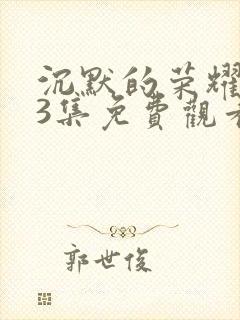 沉默的荣耀
3集免費觀看
郭世俊